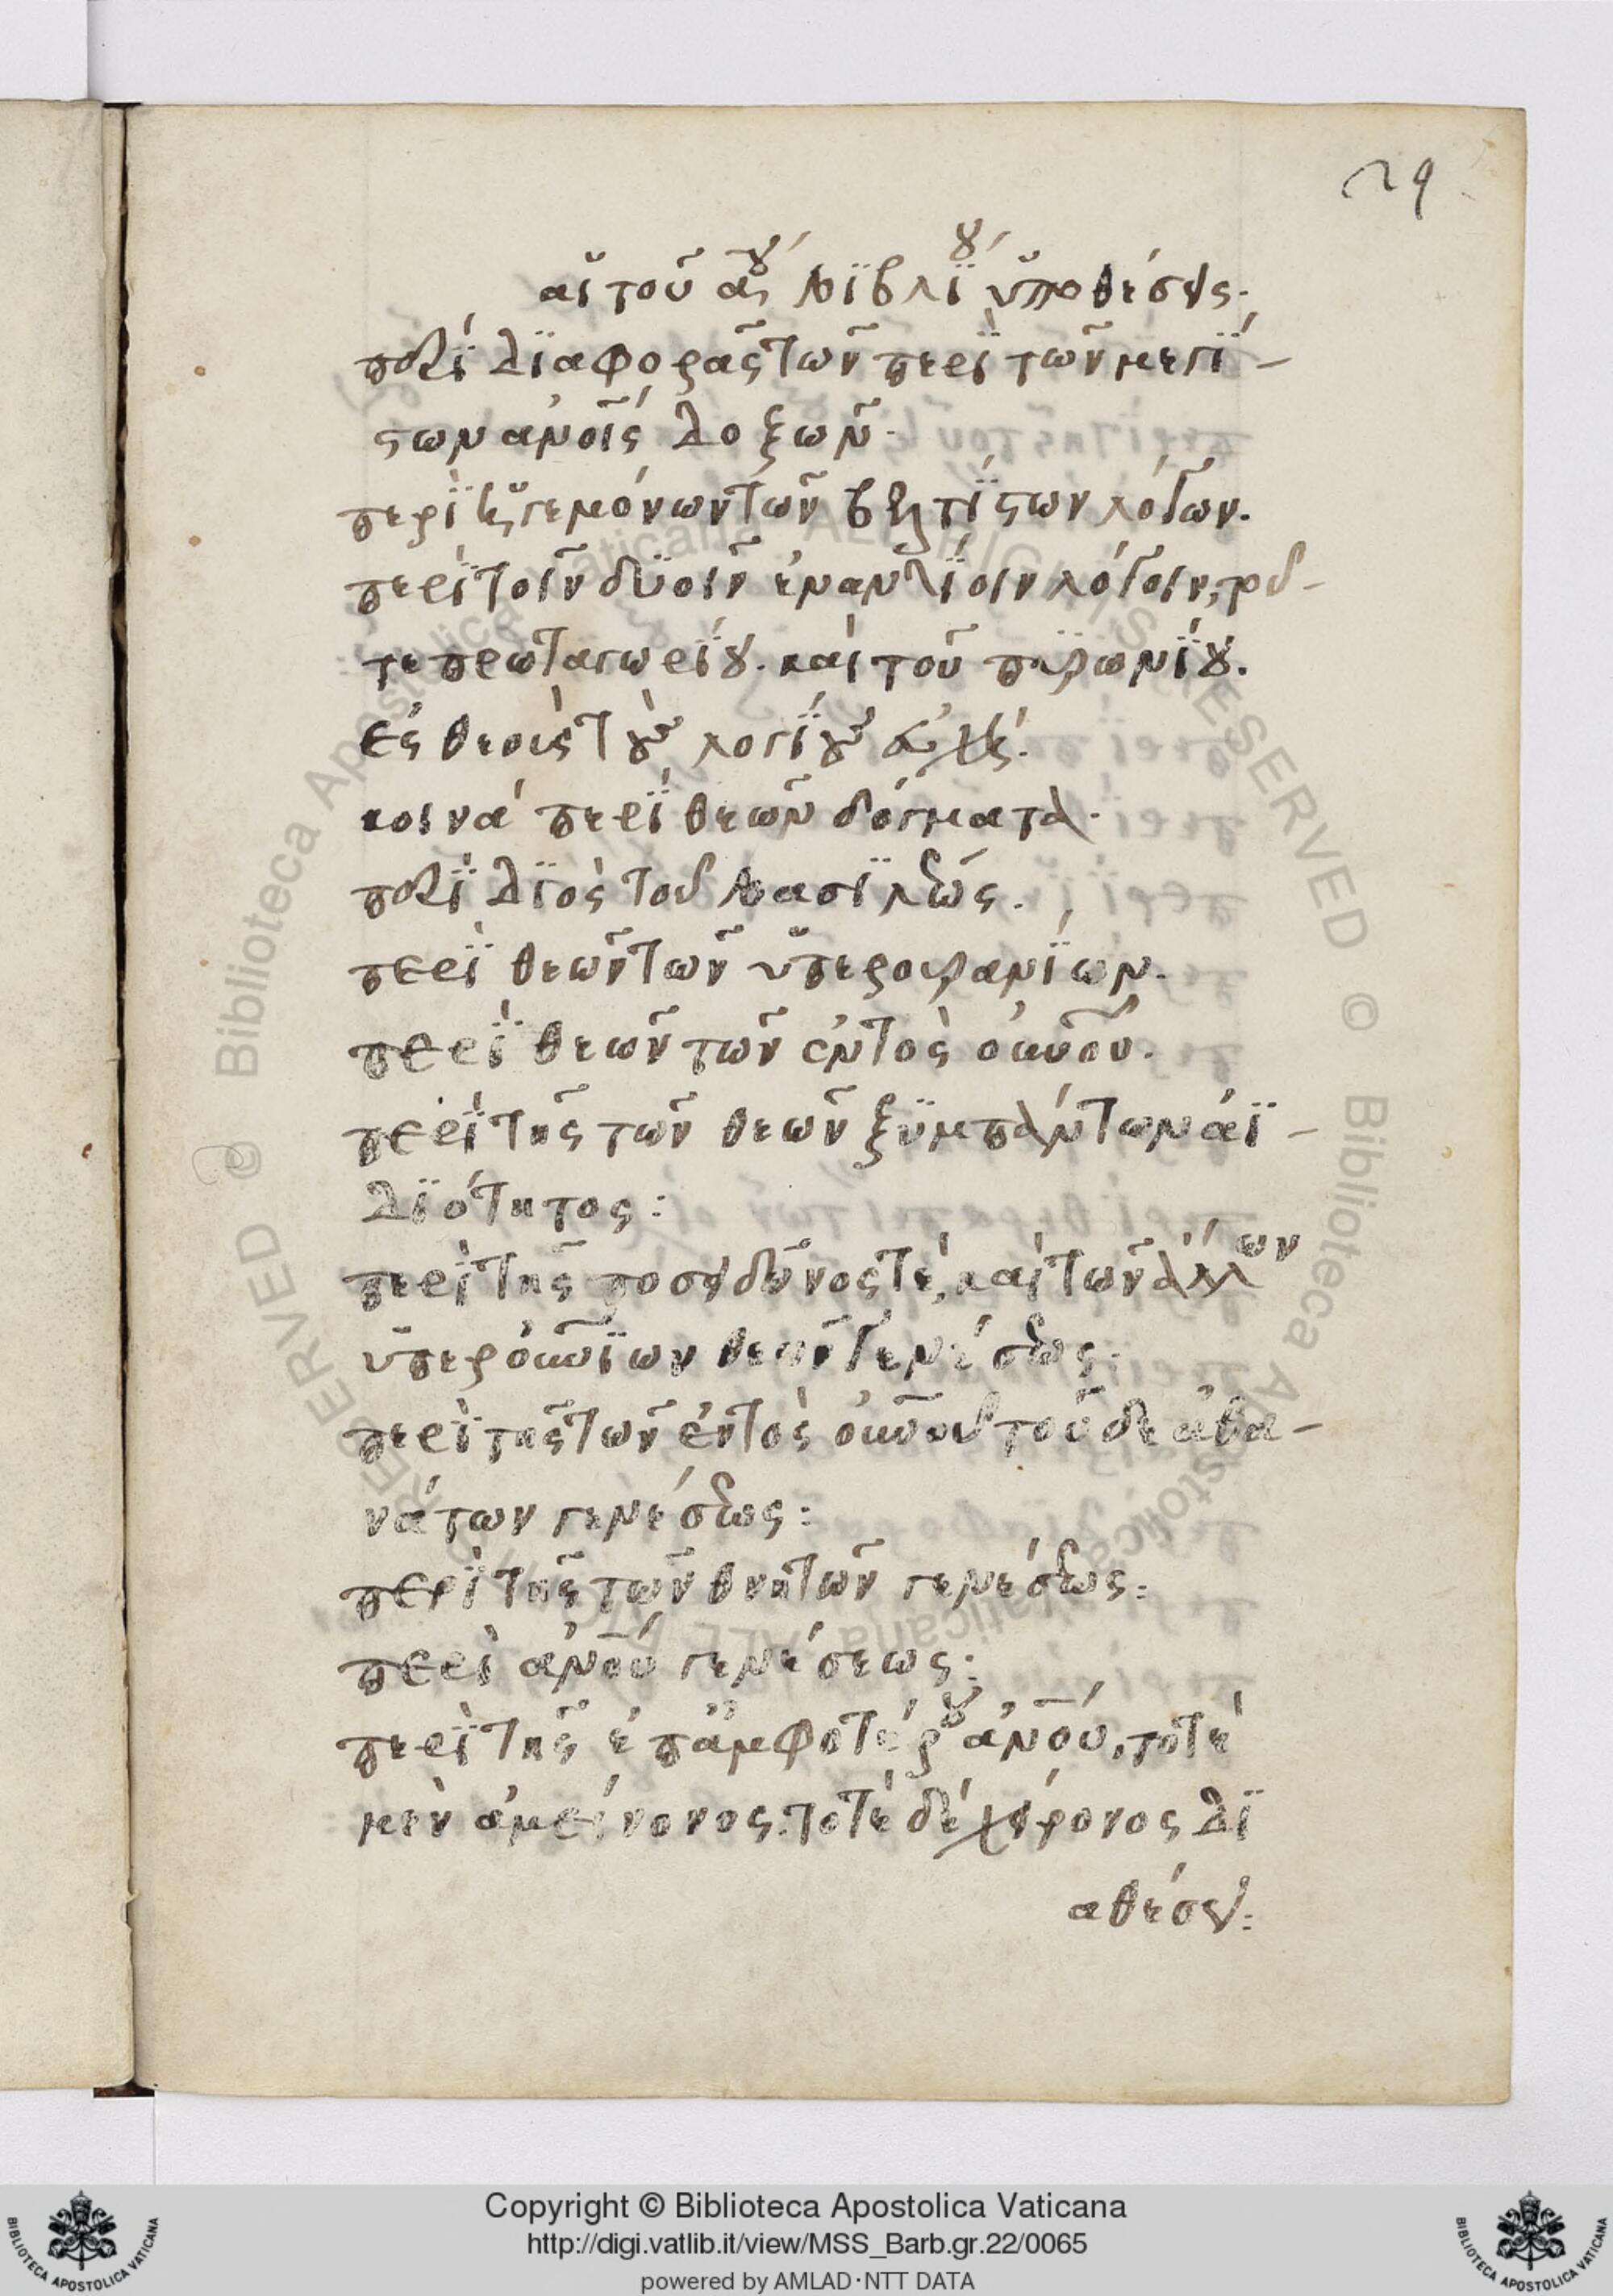 29
αἱ τοῦ α<sup>ου</sup> βιβλί<sup>ου</sup> ὑποθέσεις.
περὶ διαφορᾶς τῶν περὶ τῶν μεγί-
στων ἀνοις δοξῶν.
περὶ ἡγεμόνων τῶν βελτίστων λόγων.
περὶ τοῖν δυοῖν ἐναντίοιν λόγοιν, τοῦ
τε πρωταγωρίου. καὶ τοῦ πυρωνίου.
ἐς θεοὺς τοὺς λογίους
κοινὰ περὶ θεῶν δόγματα.
περὶ διὸς τοῦ βασιλέως.
περὶ θεῶν τῶν ὑπερουρανίων.
περὶ θεῶν τῶν ἐντὸς οὐνοῦ.
περὶ τῆς τῶν θεῶν ξυμπάντων ἀϊ-
διότητος:
περὶ τῆς ποσειδῶνος τὲ, καὶ τῶν ἄλλων
ὑπερουνίων θεῶν γενέσεως:
περὶ τῆς τῶν ἐντὸς οὐνοῦ τοῦδε ἀθα-
νάτων γενέσεως:
περὶ τῆς τῶν θνητῶν γενέσεως:
περὶ ἀνου γενέσεως:
περὶ τῆς ἐπαμφοτέρου ἀνου, τοτὲ
μὲν ἀμείνονος. τοτὲ δὲ χείρονος δι
αθέσεως:
© Biblioteca Apostolica Vaticana ALL RIGHTS RESERVED
Copyright © Biblioteca Apostolica Vaticana
http://digi.vatlib.it/view/MSS_Barb.gr.22/0065
powered by AMLAD·NTT DATA
BIBLIOTECA APOSTOLICA VATICANA
BIBLIOTECA APOSTOLICA VATICANA